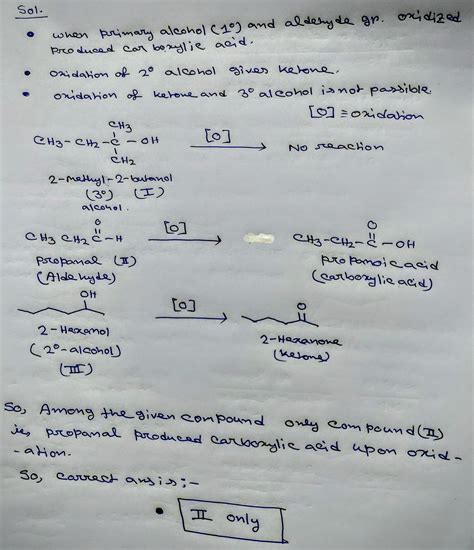 Sol.
• when primary alcohol (1°) and aldehyde gp. oxidized
produced carboxylic acid.
• oxidation of 2° alcohol gives ketone.
• oxidation of ketone and 3° alcohol is not possible.
[O] ≡ oxidation
CH3
CH3-CH2-C-OH [O] No reaction
CH2
2-methyl-2-butanol
(3°) (I)
alcohol.
O
CH3 CH2 C-H [O] CH3-CH2-C-OH
O
propanal (II) propanoic acid
(Aldehyde) (carboxylic acid)
OH [O] O
2-Hexanol 2-Hexanone
(2°-alcohol) (Ketone)
(III)
So, Among the given compound only compound (II)
is propanal produced carboxylic acid upon oxid-
-ation.
So, correct ans is:-
• II only